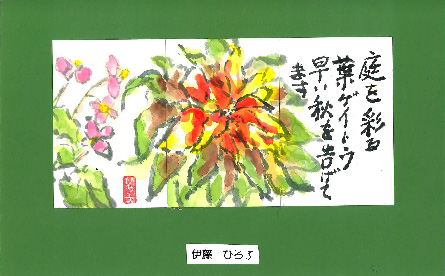 庭を彩る
葉ゲイトウ
早い秋を告げて
ます
伊藤 ひろ子